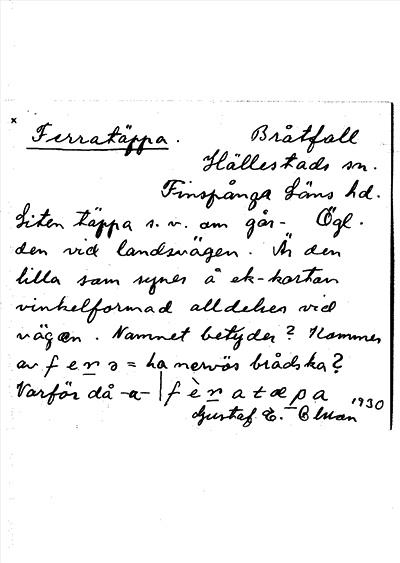 x
Ferratäppa. Bråtfall
Hällestads sn.
Finspånga läns hd.
Liten täppa s. v. om går- Ögl.
den vid landsvägen. Är den
lilla som synes å ek-kartan
vinkelformad alldeles vid
vägen. Namnet betyder? Kommer
av ferə = ha nervös brådska?
Varför då -a- | fèratæpa
Gustaf E. 1930